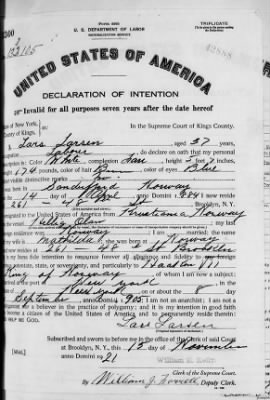 2300
FORM 2203
TRIPLICATE
U. S. DEPARTMENT OF LABOR
NATURALIZATION SERVICE
UNITED STATES OF AMERICA
DECLARATION OF INTENTION
Invalid for all purposes seven years after the date hereof
of New York,
County of Kings,
In the Supreme Court of Kings County.
I, Lars Larsen, aged 37 years,
occupation Laborer, do declare on oath that my personal
description is: Color White, complexion Fair, height 5 feet 7 inches,
weight 174 pounds, color of hair Brown, color of eyes Blue
visible distinctive marks
born in Sandefjord Norway
14 day of April, anno Domini 1884; I now reside
at 261 48 St, Brooklyn, N.Y.
emigrated to the United States of America from Norway
my last
Norway I am married; the name
Mathilda; she was born in Norway
261 48 St Brooklyn
my bona fide intention to renounce forever all allegiance and fidelity to any foreign
state, or sovereignty, and particularly to Haakon VII
King of Norway, of whom I am now a subject;
New York
on or about the 8 day
September, anno Domini 1905; I am not an anarchist; I am not a
nor a believer in the practice of polygamy; and it is my intention in good faith
to become a citizen of the United States of America and to permanently reside therein:
HELP ME GOD.
Lars Larsen
Subscribed and sworn to before me in the office of the Clerk of said Court
at Brooklyn, N. Y., this 15 day of November
anno Domini 1921
[SEAL]
Clerk of the Supreme Court.
By William J., Deputy Clerk.